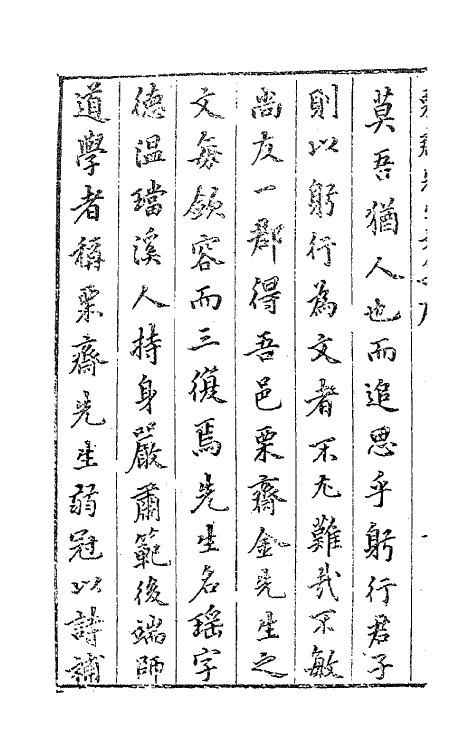 莫吾猶人也而追思乎躬行君子
則以躬行為文者不尤難哉不敏
尚友一郡得吾邑栗齋金先生之
文每斂容而三復焉先生名瑶字
德温璫溪人持身嚴肅範後端師
道學者稱栗齋先生弱冠以詩補